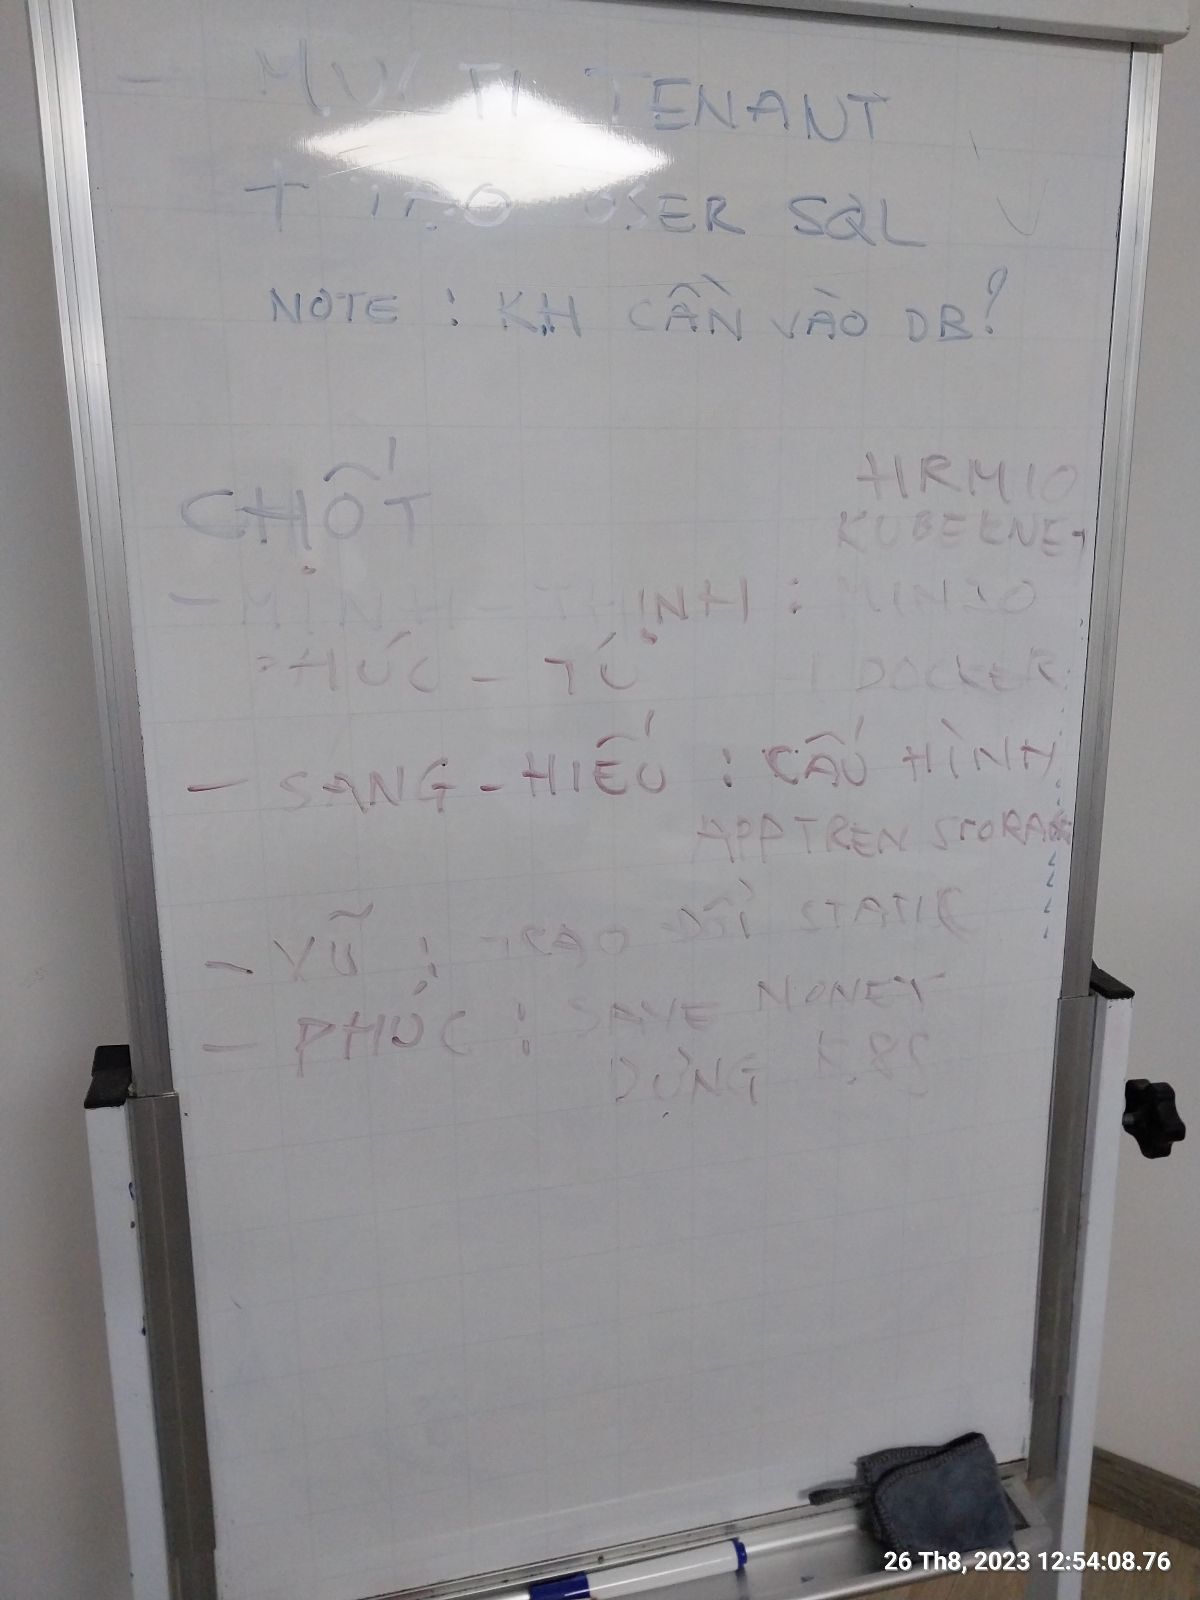 - MULTI TENANT
+ TẠO USER SQL
NOTE : KH CẦN VÀO DB?
CHỐT
HRM10
KUBERNET
- MINH - THỊNH : MINIO
PHÚC - TÚ DOCKER
- SANG - HIẾU : CẤU HÌNH
APP TREN STORAGE
- VŨ : TRAO ĐỔI STATIC
- PHÚC : SAVE MONEY
DÙNG K8S
26 Th8, 2023 12:54:08.76